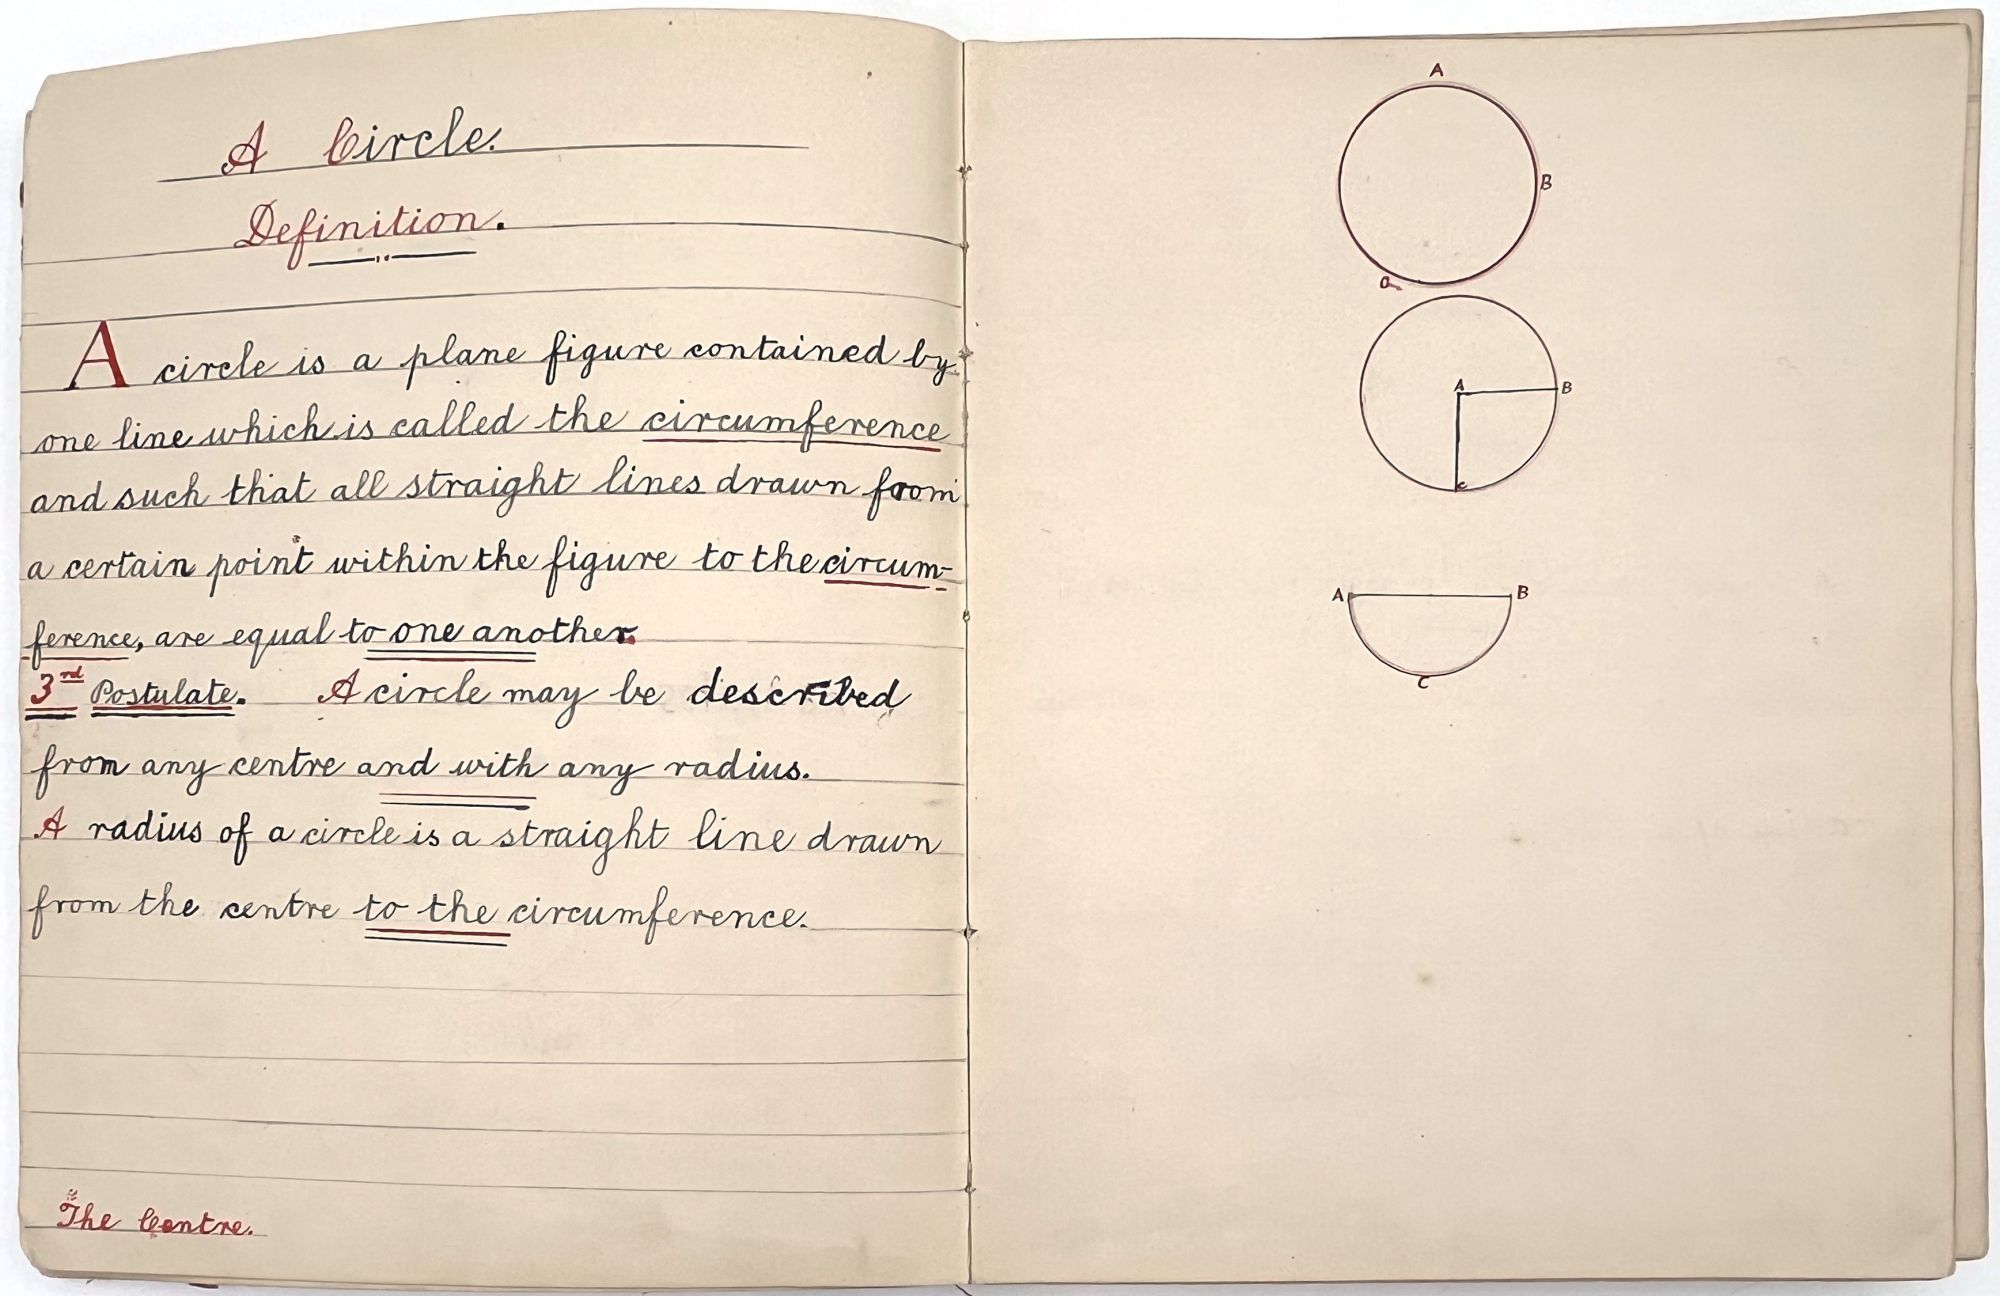 A Circle.
Definition.
A circle is a plane figure contained by
one line which is called the circumference
and such that all straight lines drawn from
a certain point within the figure to the circum-
ference, are equal to one another.
3rd Postulate. A circle may be described
from any centre and with any radius.
A radius of a circle is a straight line drawn
from the centre to the circumference.
The Centre.
A
B
A
B
C
A
B
C